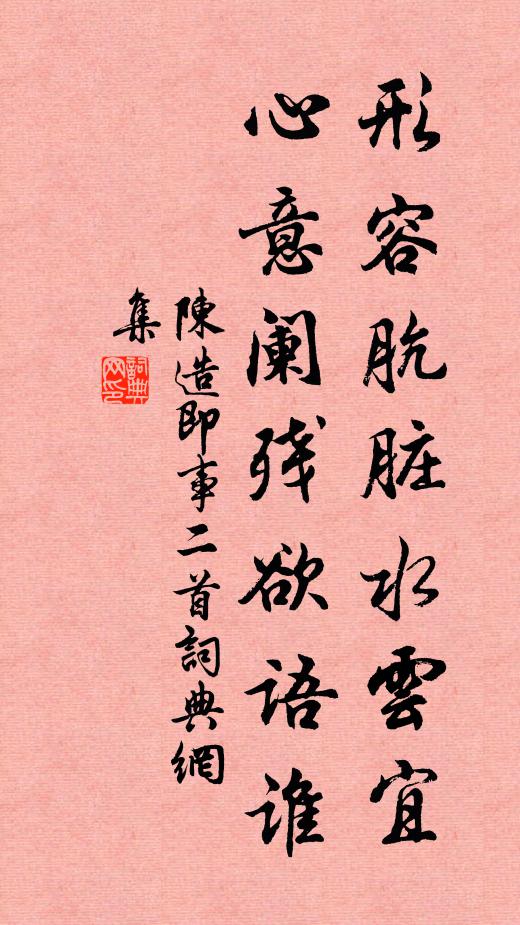 形容肮脏水雲宜
心意阑残欲语谁
陳造即事二首詞典網
集
詞典网印